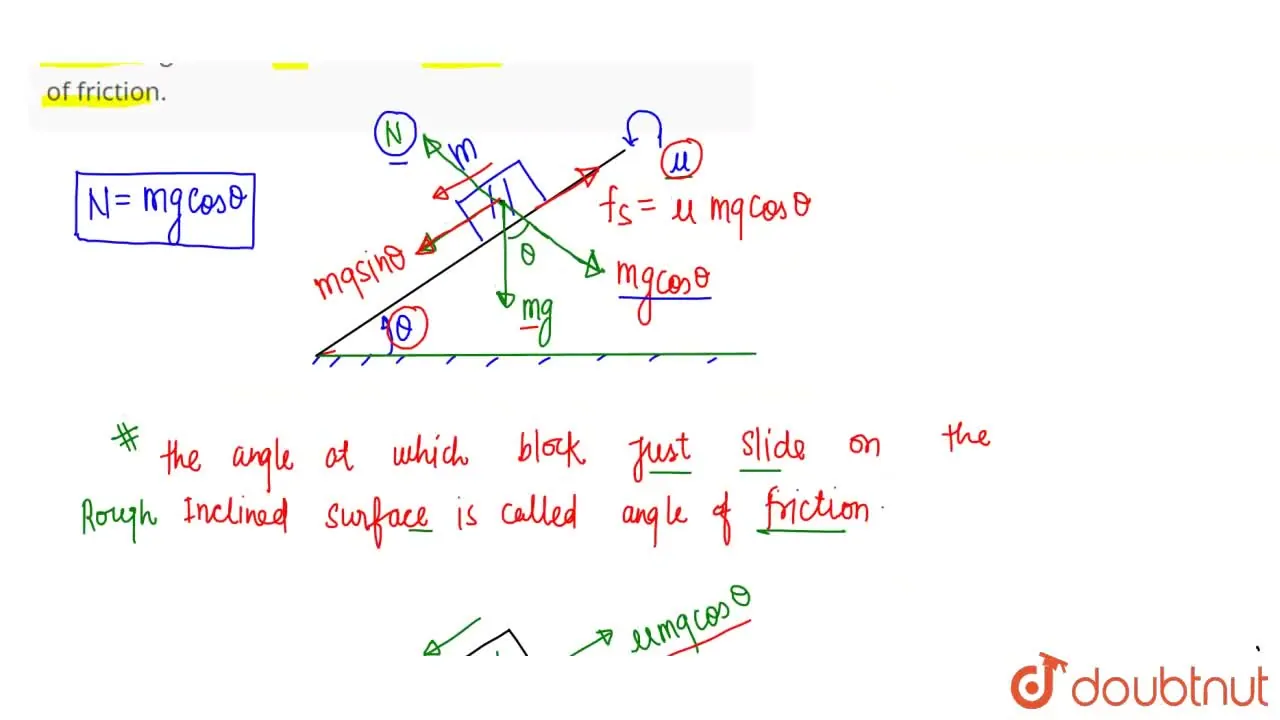 of friction.
N
m
μ
N = mg cosθ
fs = μ mg cosθ
mg sinθ
θ
mg cosθ
θ
mg
# the angle at which block just slide on the
Rough Inclined surface is called angle of friction.
μmg cosθ
doubtnut